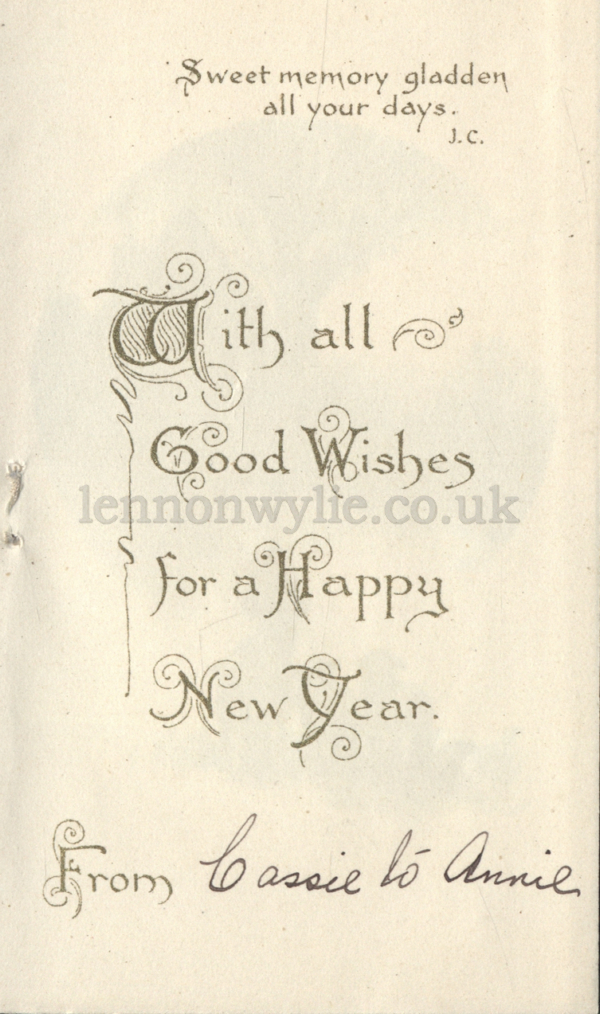 Sweet memory gladden
all your days.
J.C.
With all
Good Wishes
lennonwylie.co.uk
for a Happy
New Year.
From Cassie to Annie